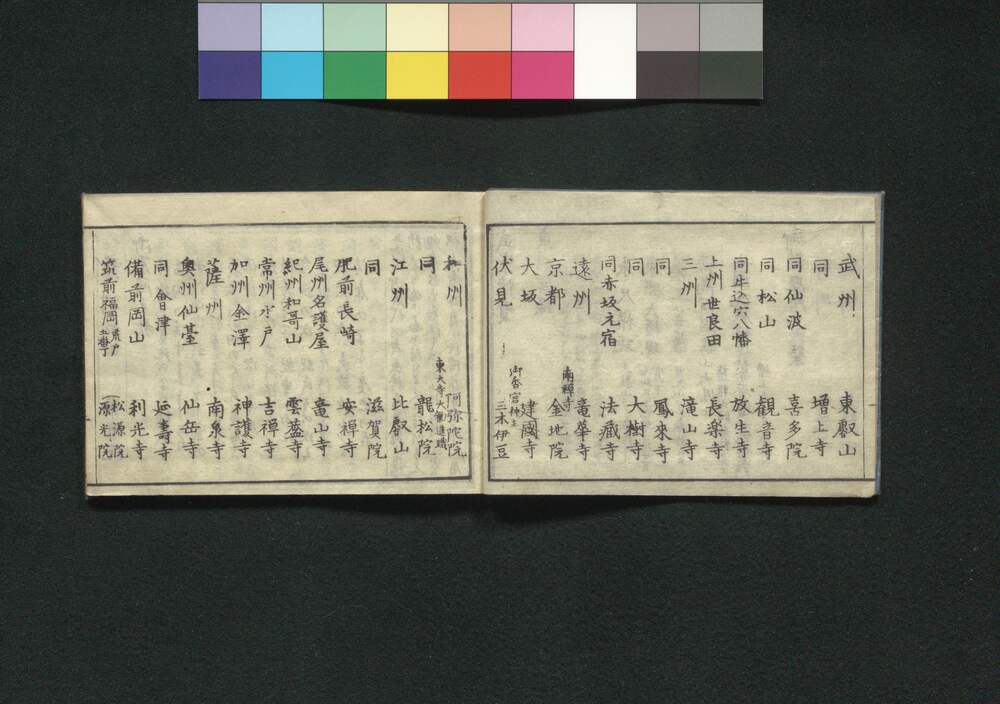 武州 東叡山
同 増上寺
同仙波 喜多院
同松山 観音寺
同牛込穴八幡 放生寺
上州世良田 長楽寺
三州 滝山寺
同 鳳来寺
同 大樹寺
同赤坂元宿 法蔵寺
遠州 竜華寺
京都 南禅寺 金地院
大坂 建國寺
伏見 御香宮神主 三木伊豆
州 阿弥陀院
同 東大寺大勧進職 龍松院
江州 比叡山
同 滋賀院
肥前長崎 安禅寺
尾州名護屋 竜山寺
紀州和哥山 雲蓋寺
常州水戸 吉禅寺
加州金澤 神護寺
薩州 南泉寺
奥州仙臺 仙岳寺
同會津 延壽寺
備前岡山 利光寺
筑前福岡 荒戸 松源院 源光院